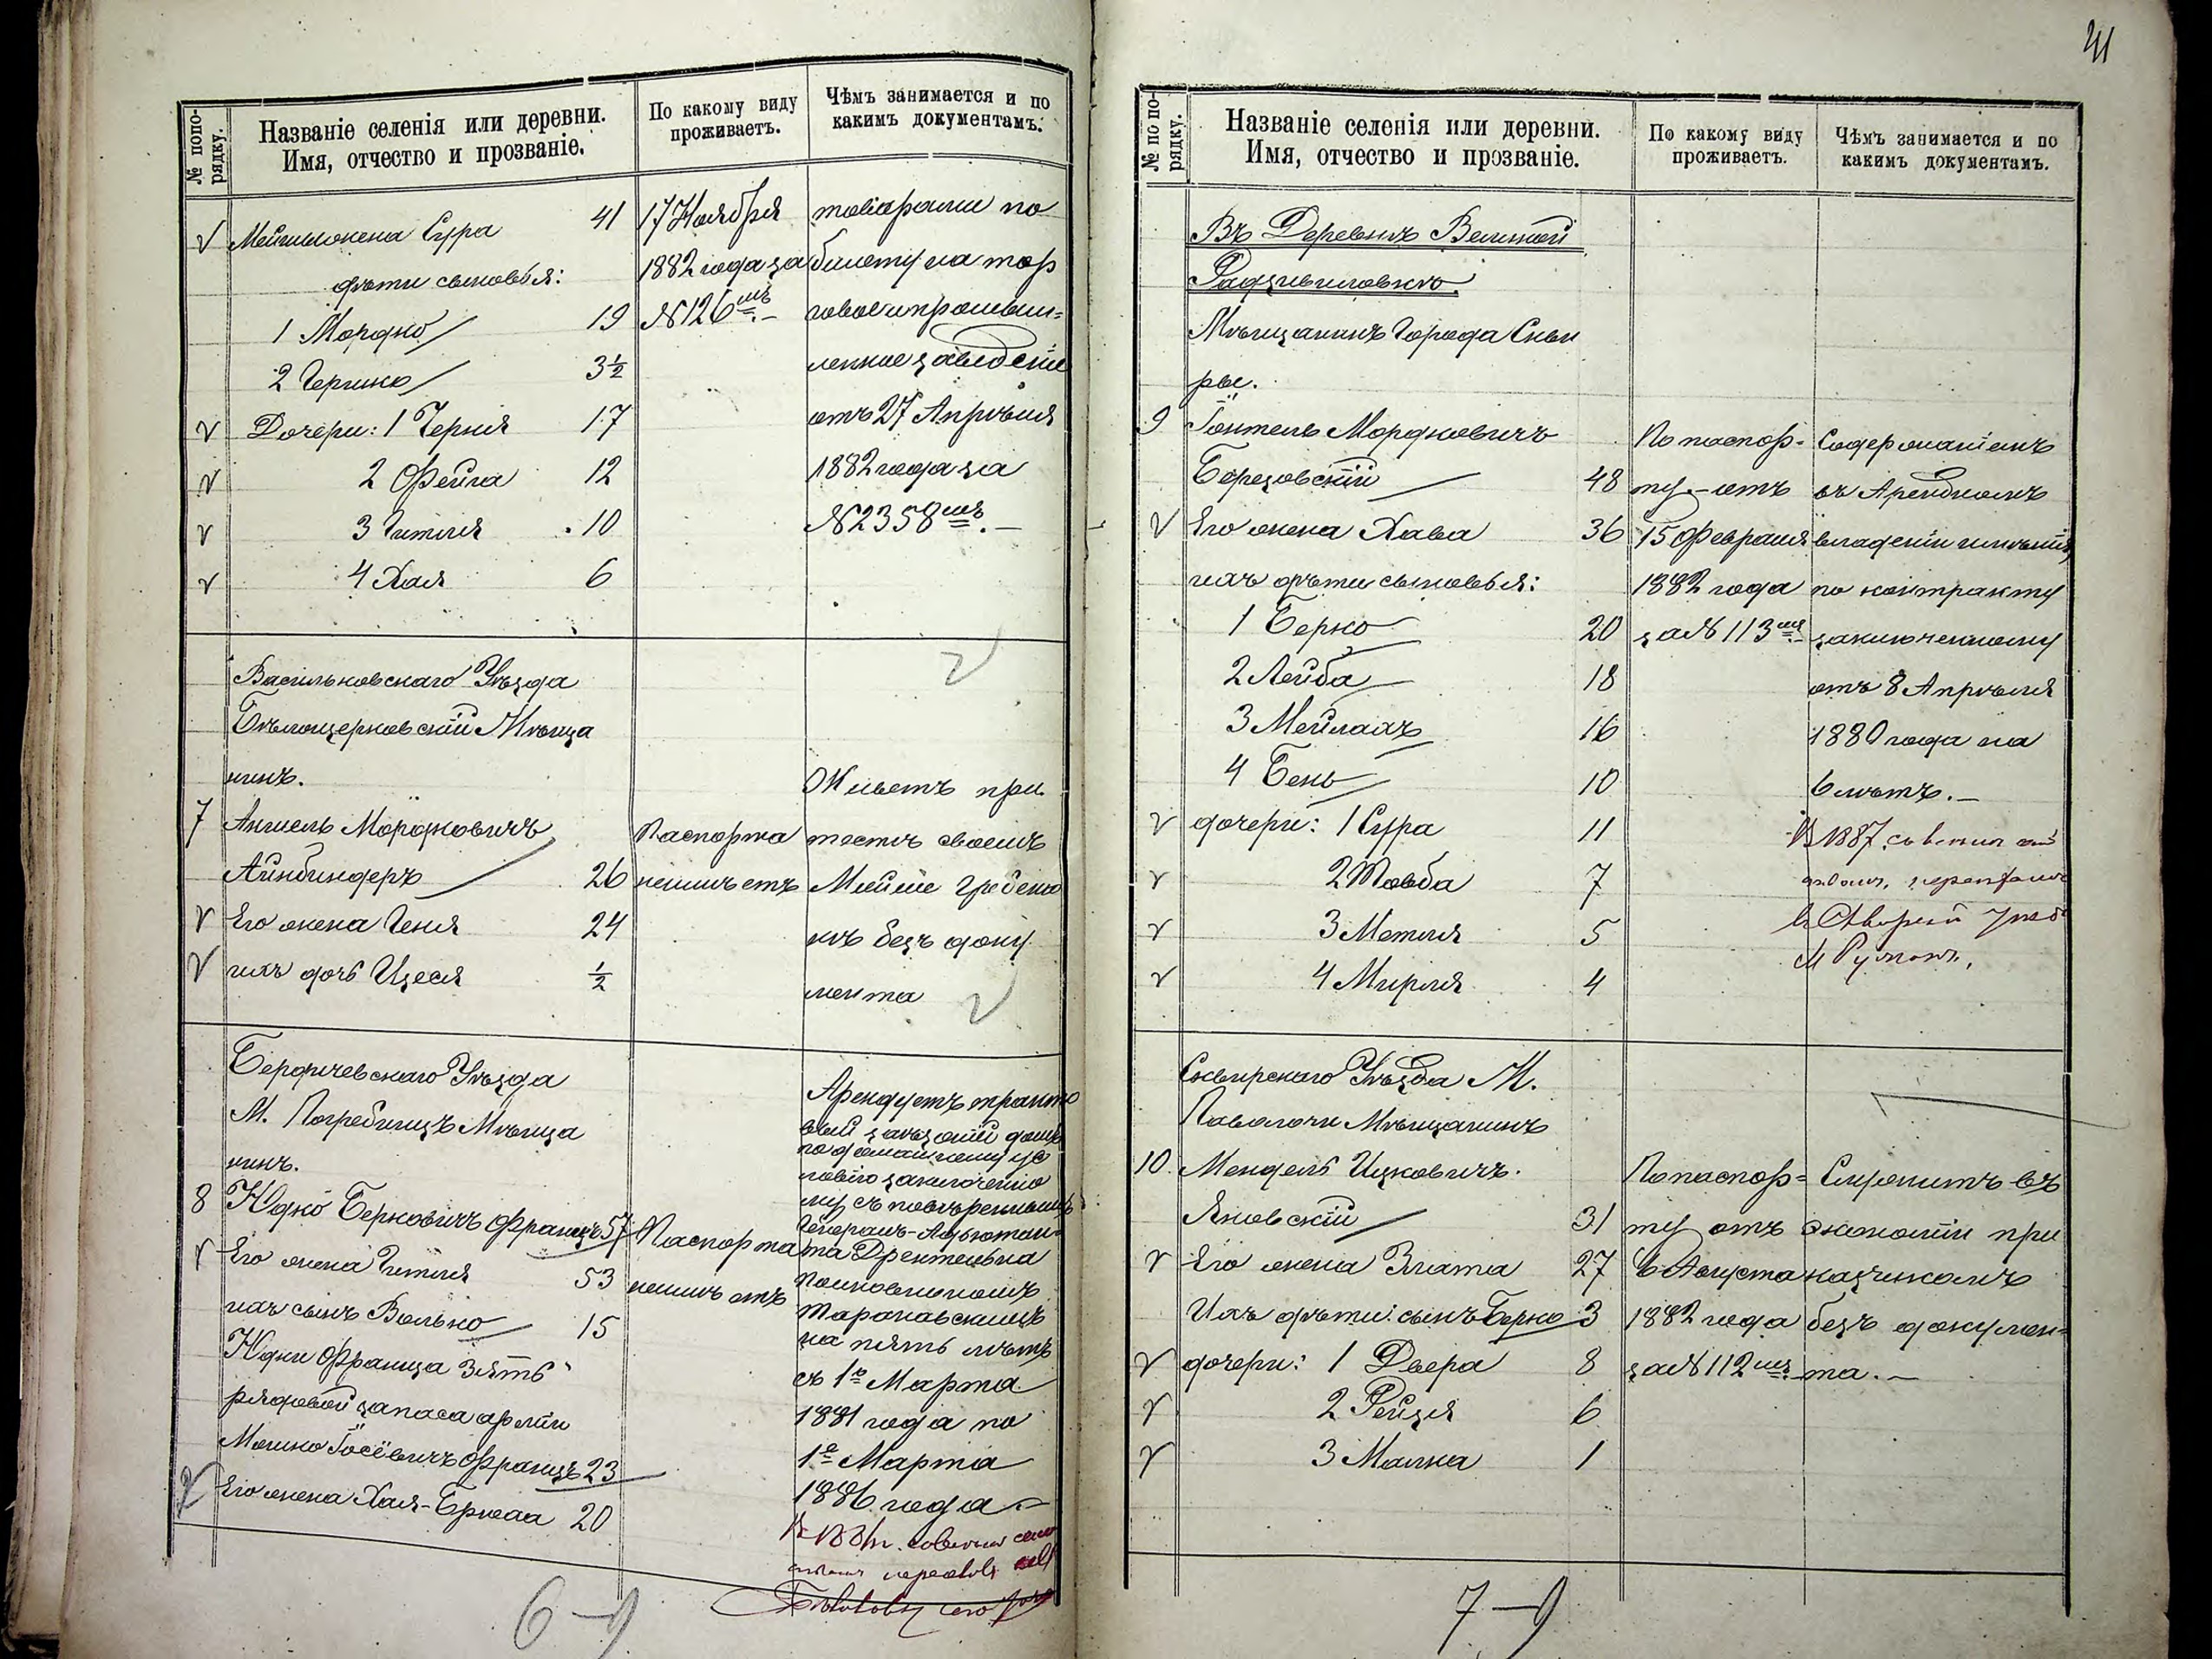 № попо-
рядку.
Названіе селенія или деревни.
Имя, отчество и прозваніе.
По какому виду
проживаетъ.
Чѣмъ занимается и по
какимъ документамъ.
Мейши жена Сура 41
дѣти сыновья:
1 Мордко 19
2 Гершко 3½
Дочери: 1 Черня 17
2 Фейга 12
3 Гитля 10
4 Хая 6
17 Ноября
1882 года за
№ 126мъ.
товарами по
билету на тор
говое и промыш=
ленное заведеніе
отъ 27 Апрѣля
1882 года за
№ 2358мъ.
Васильковскаго Уѣзда
Бѣлоцерковскій Мѣща
нинъ.
7 Аншель Мордковичъ
Айнбиндеръ 26
Его жена Геня 24
ихъ дочь Цеся ½
Паспорта
неимѣетъ
Живетъ при
тестѣ своемъ
Мейше Гребень
кѣ безъ доку
мента
Бердичевскаго Уѣзда
М. Погребищъ Мѣща
нинъ.
8 Юдко Берковичъ Францъ 57
Его жена Гитля 53
ихъ сынъ Волько 15
Юдки Франца Зять
рядовой запаса арміи
Мошко Іосёвичъ Францъ 23
Его жена Хая- 20
Паспорта
неимѣетъ
Арендуетъ тракто
вый заѣзжій домъ
по домашнему ус
ловію заключенно
му съ повѣреннымъ
Генералъ-Адъютан
та Дрентельна
Полковникомъ
Тарановскимъ
на пять лѣтъ
съ 1го Марта
1881 года по
1е Марта
1886 года
6-9
41
№ по по-
рядку.
Названіе селенія или деревни.
Имя, отчество и прозваніе.
По какому виду
проживаетъ.
Чѣмъ занимается и по
какимъ документамъ.
Въ Деревнѣ Великой
Радзивиловкѣ
Мѣщанинъ Города Скви
ры.
9 Мордковичъ
Березовскій 48
Его жена Хава 36
ихъ дѣти сыновья:
1 Берко 20
2 Лейба 18
3 Мейлахъ 16
4 Бень 10
дочери: 1 Сура 11
2 Товба 7
3 Метля 5
4 Мирля 4
По паспор-
ту отъ
15 Февраля
1882 года
за № 113мъ
Содержаніемъ
въ Арендномъ
владеніи имѣній
по контракту
заключенному
отъ 8 Апрѣля
1880 года на
6 лѣтъ.
В 1887
Сквирскаго Уѣзда М.
Паволочи Мѣщанинъ
10. Мендель Ицковичъ
Яновскій 31
Его жена Злата 27
Ихъ дѣти: сынъ Берко 3
дочери: 1 Двера 8
2 Рейзя 6
3 Малка 1
По паспор=
ту отъ
6 Августа
1882 года
за № 112мъ
Служитъ въ
экономіи при
безъ докумен=
та.
7-9